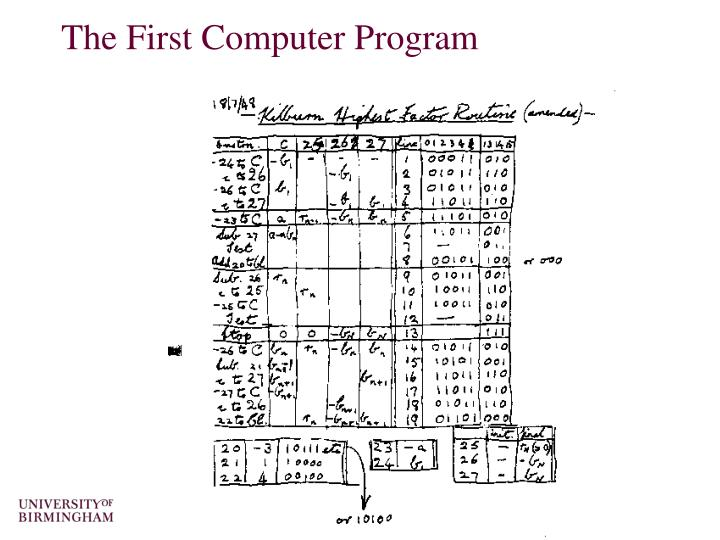 The First Computer Program
18/7/48
Kilburn Highest Factor Routine (amended) -
C 25 26 27 line 0 1 2 3 4 13 14 15
-24 to C -b1 - - - 1 00011 010
c to 26 -b1 2 01011 110
-26 to C b1 3 01011 010
c to 27 -b1 b1 4 11011 110
-23 to C a -bn bn 5 11101 010
Sub 27 a-nbn 6 11011 001
Test 7 - 011
Add 20 to bl 8 00101 100 or 000
Sub. 26 rn 9 01011 001
c to 25 rn 10 10011 110
-25 to C 11 10011 010
Test 12 - 011
Stop 0 0 -bN bN 13 111
-26 to C bn rn -bn bn 14 01011 010
Sub. 21 15 10101 001
c to 27 bn+1 bn+1 16 11011 110
-27 to C -bn+1 17 11011 010
c to 26 -bn+1 18 01011 110
22 to bl. rn -bn+1 bn+1 19 01101 000
20 -3 10111 etc
21 1 10000
22 4 00100
23 -a
24 b1
init. final
25 -
26 - -bN
27 - bN
or 10100
UNIVERSITY OF
BIRMINGHAM